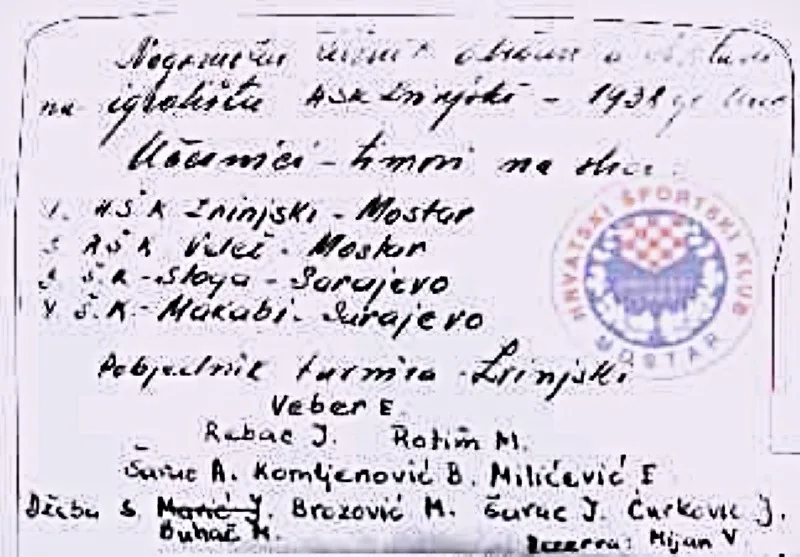 na igralištu HŠK Zrinjski - 1938
Učesnici - timovi na slici
1. HŠK Zrinjski - Mostar
RŠK Velež - Mostar
Š.K - Sloga - Sarajevo
Š.K. - Makabi - Sarajevo
Pobjednik turnira - Zrinjski
Veber E.
Rebac J. Rotim M.
Šaruc A. Komljenović B. Milićević I
Džeba S. Marić J. Brozović M. Šaruc J. Ćurković J.
Buhač M.
Rezerva: Mijan V.
HRVATSKI ŠPORTSKI KLUB
MOSTAR